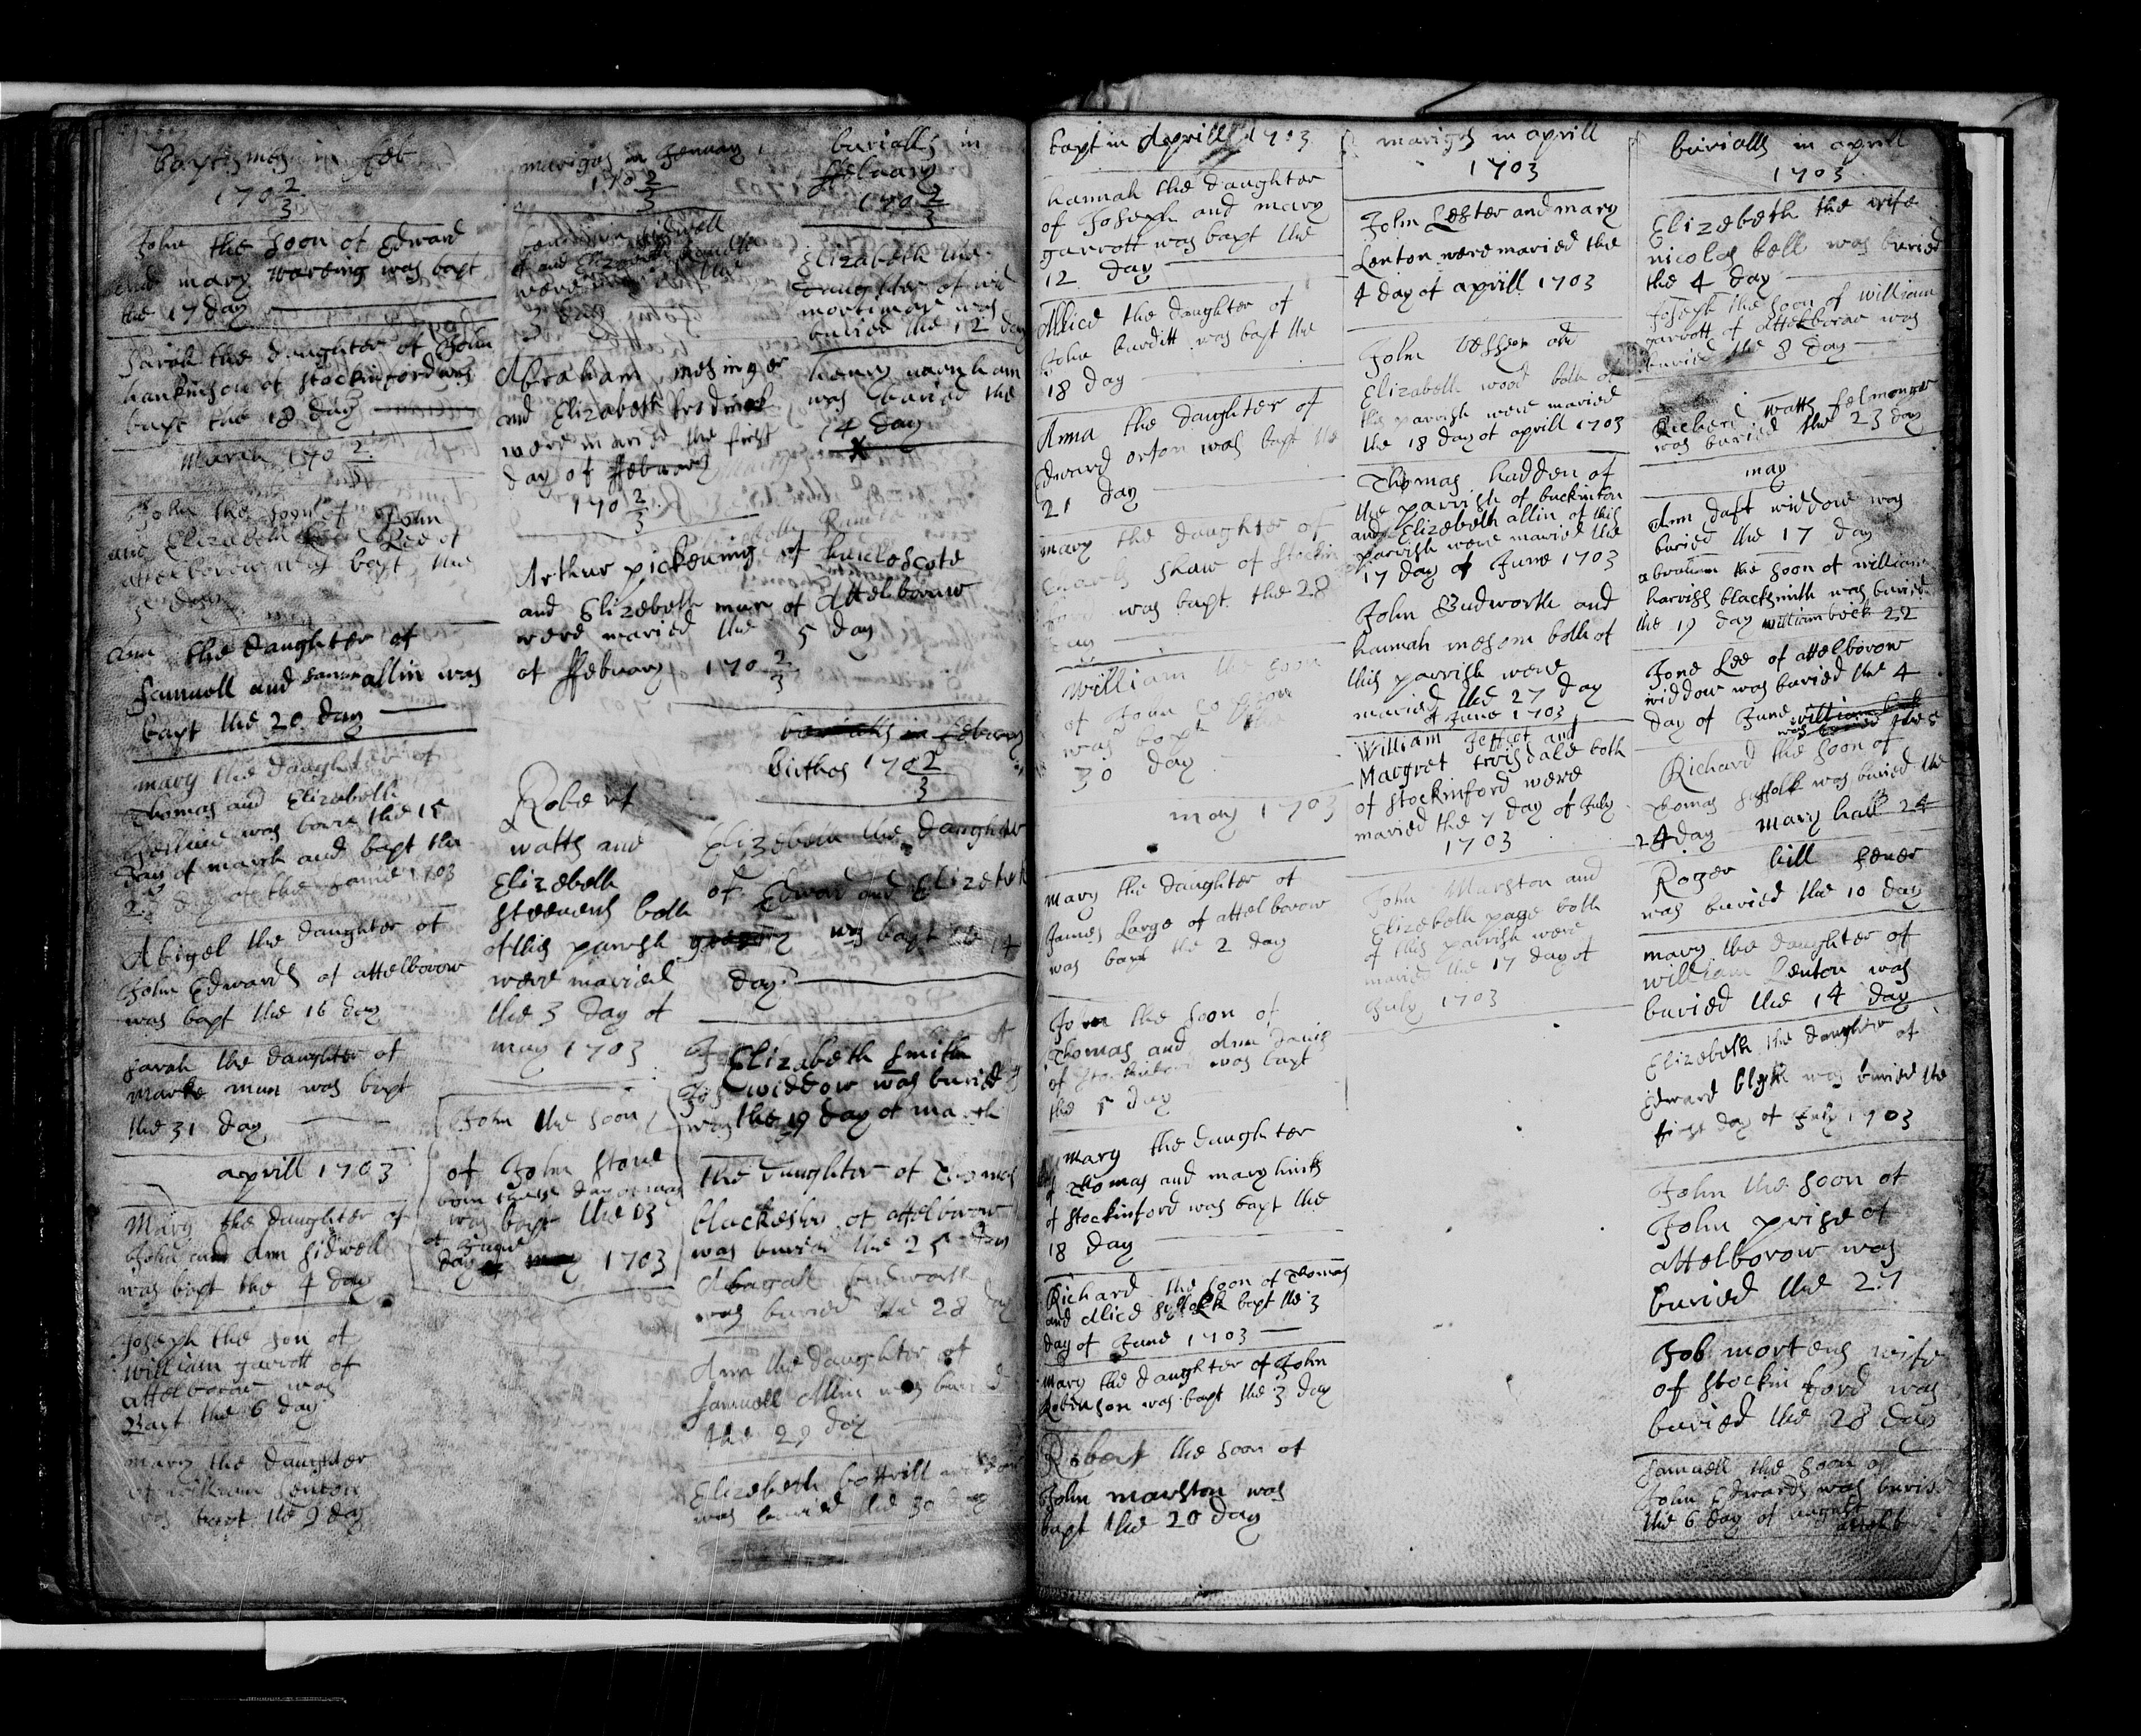 baptismes in feb
170 2/3
John the soon of Edward
and mary wareing was bapt
the 17 day
Sarah the daughter of John
hankinson of stockinford was
bapt the 18 day
March 170 2
John the soon of John
and Elizabeth Lee of
attelborow was bapt the
5 day
Ann the daughter of
Samuell and allin was
bapt the 20 day
mary the daughter of
Thomas and Elizabeth
was borne the 15
day of march and bapt the
day of the same 1703
Abigel the daughter of
John Edwards of attelborow
was bapt the 16 day
Sarah the daughter of
Marke mun was bapt
the 31 day
aprill 1703
Mary the daughter of
John and Ann Sidwell
was bapt the 4 day
Joseph the son of
William garrott of
attelborow was
Bapt the 6 day
mary the daughter
of william Lenton
was bapt the 9 day
mariges in January
170 2/3
and Elizabeth
were
Abraham mesinger
and Elizabeth
were maried the first
day of ffebuary
170 2/3
Arthur pickering of hucloscote
and Elizebeth mun of Attelborow
were maried the 5 day
of ffebuary 170 2/3
Robert
watts and
Elizebeth
steevens both
of this parrish
were maried
the 3 day of
may 1703
John the soon
of John stone
was bapt the 13
of June
day 1703
burialls in
ffebuary
170 2/3
Elizabeth the
daughter of
mortimar was
buried the 12 day
henry
was buried the
14 day
burialls in febuary
Births 170 2/3
Elizebeth the daughter
of Edward and Elizebeth
was bapt the 14
day
Elizabeth Smith
widdow was buried
the 19 day of march
the daughter of Thomas
of attelborow
was buried the 25 day
was buried the 28 day
Ann the daughter of
Samuell Allin was buried
the 29 day
Elizebeth bottrill
was buried the 30 day
bapt in Aprill 1703
hannah the daughter
of Joseph and mary
garrott was bapt the
12 day
Allice the daughter of
John burditt was bapt the
18 day
Anna the daughter of
Edward orton was bapt the
21 day
mary the daughter of
Charls Shaw of Stockin
ford was bapt the 28
day
William the soon
of John
was bapt the
30 day
may 1703
mary the daughter of
James Large of attelborow
was bapt the 2 day
John the soon of
Thomas and Ann Davis
of stockinford was bapt
the 5 day
mary the daughter
of Thomas and mary hinks
of stockinford was bapt the
18 day
Richard the soon of Thomas
and Allice suffolk bapt the 3
day of June 1703
mary the daughter of John
Robinson was bapt the 3 day
Robert the soon of
John marston was
bapt the 20 day
mariges in aprill
1703
John Lester and mary
Lenton were maried the
4 day of aprill 1703
John and
Elizabeth wood both of
this parrish were maried
the 18 day of aprill 1703
Thomas hadden of
the parrish of buckinton
and Elizebeth allin of this
parrish were maried the
17 day of June 1703
John Budworth and
hannah mesom both of
this parrish were
maried the 27 day
of June 1703
William Jeffcot and
Margret troisdale both
of stockinford were
maried the 7 day of July
1703
John Marston and
Elizebeth page both
of this parrish were
maried the 17 day of
July 1703
burialls in aprill
1703
Elizebeth the wife
nicolas bell was buried
the 4 day
Joseph the soon of william
garrott of attelborow was
buried the 8 day
Richard watts felmonger
was buried the 23 day
may
Ann daft widdow was
buried the 17 day
abraham the soon of william
harriss blacksmith was buried
the 19 day william bock 22
Jone Lee of attelborow
widdow was buried the 4
day of June
Richard the soon of
Thomas suffolk was buried the
24 day mary hall 24
Roger hill sener
was buried the 10 day
mary the daughter of
william Lenton was
buried the 14 day
Elizebeth the daughter of
Edward was buried the
first day of July 1703
John the soon of
John prise of
attelborow was
buried the 27
Job mortens wife
of stockin ford was
buried the 28 day
Samuell the soon of
John Edwards was buried
the 6 day of august